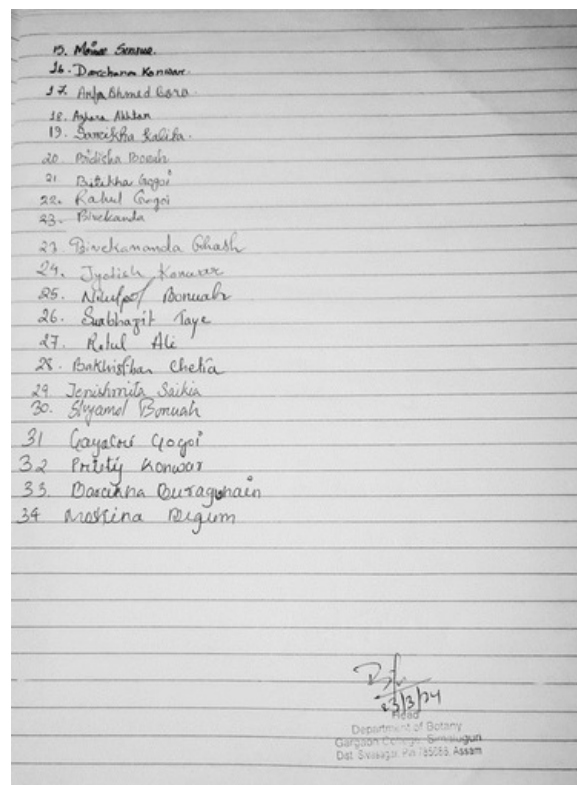 15. Moinee Sensua.
16. Darchana Konwar.
17. Arifa Ahmed Bora.
18. Azhara Akhtar
19. Sancikha Kalita.
20 Bidisha Borah
21 Bitikha Gogoi
22. Rahul Gogoi
23. Bivekanda
23 Bivekananda Ghash
24. Jyotish Konwar
25. Bonuah
26. Surbhagit Taye
27. Rotul Ali
28. Chetia
29 Jenishmita Saikia
30. Shyamol Bonuah
31 Gayatri Gogoi
32 Prity Konwar
33. Buragohain
34 Moskina Begum
23/3/24
Head
Department of Botany
Gargaon College, Simaluguri
Dist. Sivasagar, Pin 785686, Assam